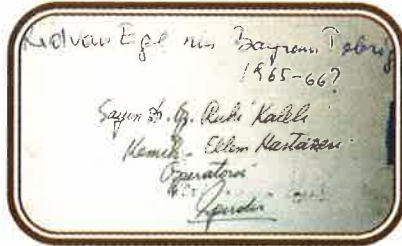 Rıdvan Ege nin Bayram Tebriği
1965-66?
Sayın Dr. Op. Ruhi Kaleli
Kemik - Eklem Hastazesi
Operatörü